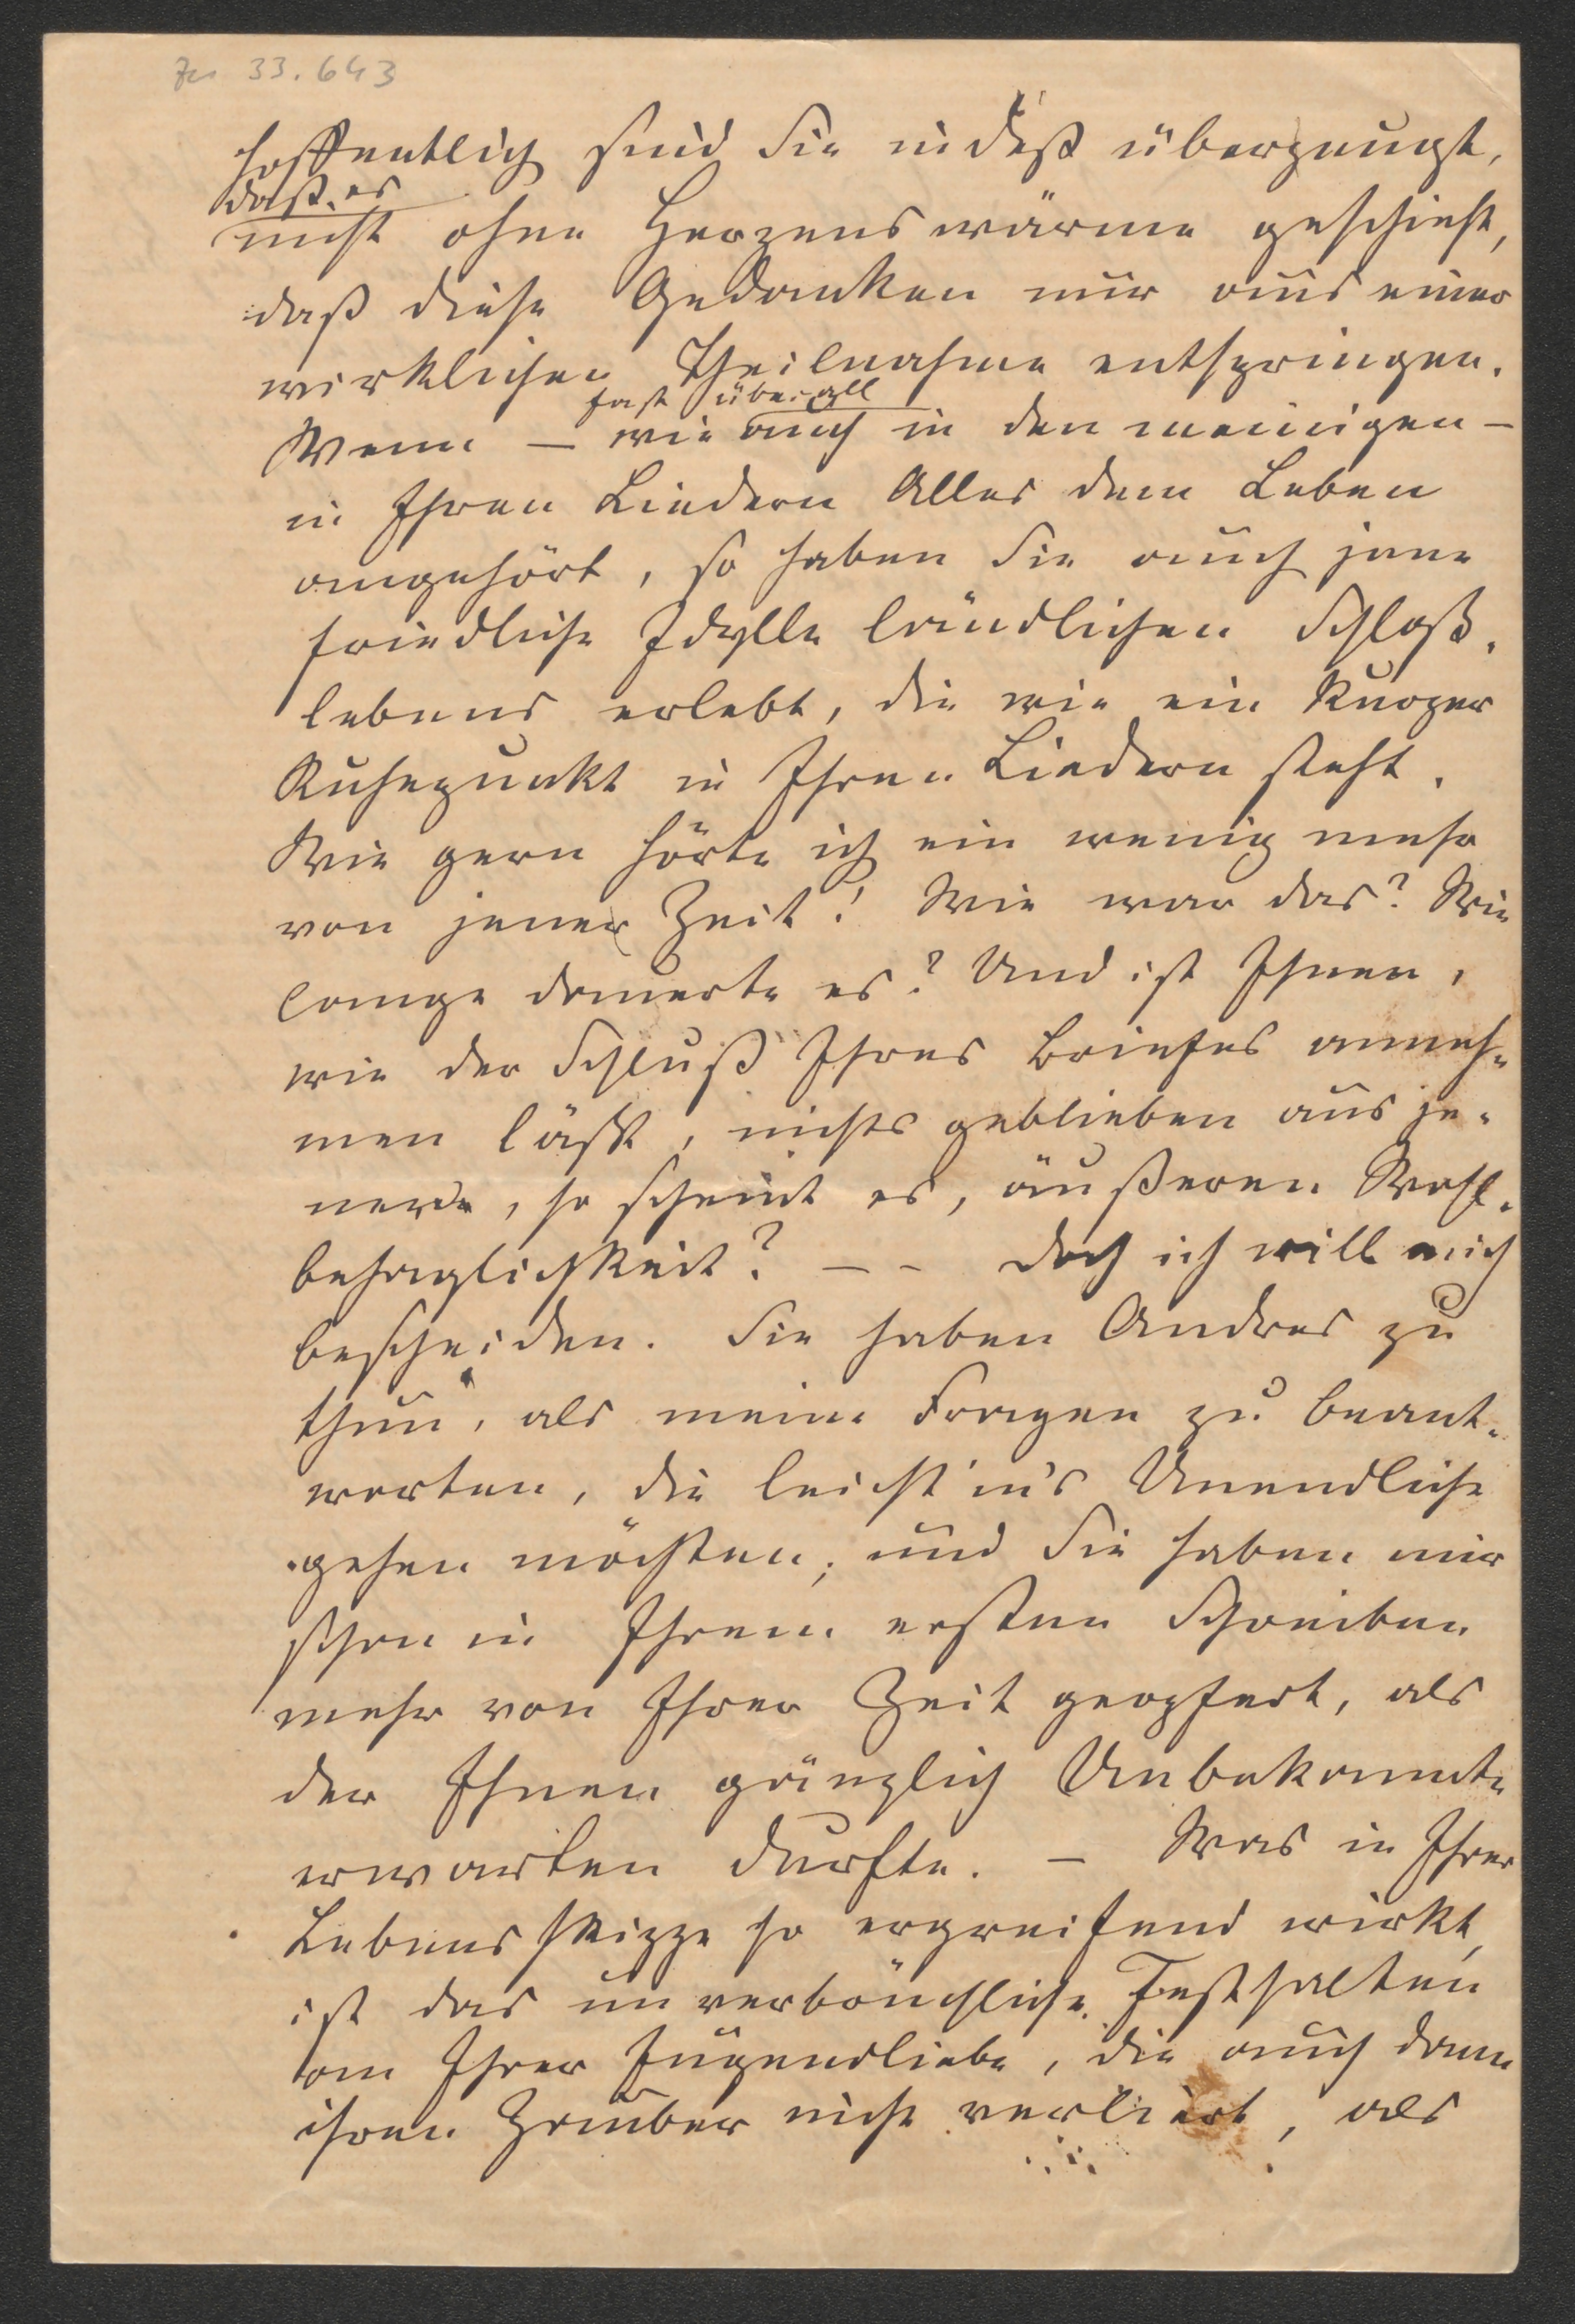 Zu 33.643
hoffentlich sind Sie indeß überzeugt,
daß es
nicht ohne Herzenswärme geschieht,
daß diese Gedanken nur aus einer
wirklichen Theilnahme entspringen.
fast überall
Wenn — wie auch in den meinigen —
in Ihren Liedern Alles dem Leben
angehört, so haben Sie auch jene
friedliche Idylle ländlichen Schloß-
lebens erlebt, die wie ein kurzer
Ruhepunkt in Ihren Liedern steht.
Wie gern hörte ich ein wenig mehr
von jener Zeit! Wie war das? Wie
lange dauerte es? Und ist Ihnen,
wie der Schluß Ihres Briefes anneh-
men läßt, nichts geblieben aus je-
ner, so scheint es, äußeren Wohl-
behaglichkeit? — – Doch ich will mich
bescheiden. Sie haben Andres zu
thun, als meine Fragen zu beant-
worten, die leicht in's Unendliche
gehen möchten; und Sie haben mir
schon in Ihrem ersten Schreiben
mehr von Ihrer Zeit geopfert, als
der Ihnen gänzlich Unbekannte
erwarten durfte. — Was in Ihrer
Lebensskizze so ergreifend wirkt,
ist das unverbrüchliche Festhalten
an Ihrer Jugendliebe, die auch dann
ihren Zauber nicht verliert, als